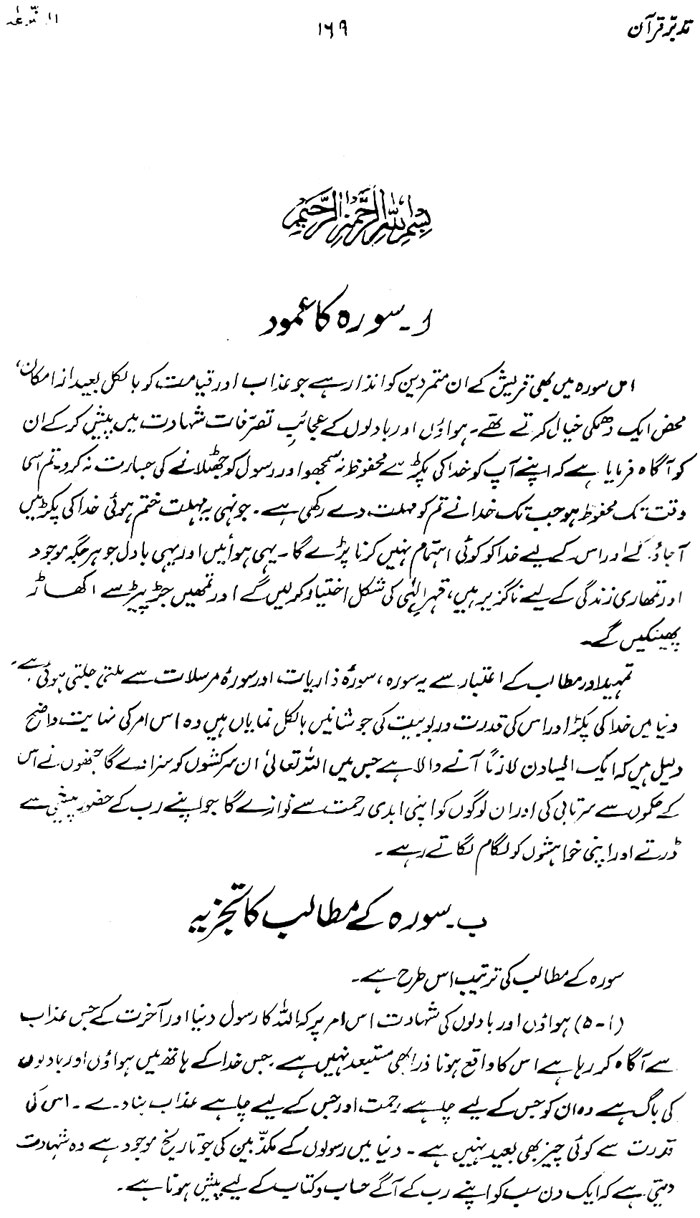 تدبّرِ قرآن ۱۶۹ النّٰزعٰت
بسم اللہ الرحمٰن الرحیم
ا۔ سورہ کا عمود
اس سورہ میں بھی قریش کے ان متمردین کو انذار ہے جو عذاب اور قیامت کو بالکل بعید از امکان،
محض ایک دھمکی خیال کرتے تھے۔ ہواؤں اور بادلوں کے عجائبِ تصرّفات شہادت میں پیش کر کے ان
کو آگاہ فرمایا ہے کہ اپنے آپ کو خدا کی پکڑ سے محفوظ نہ سمجھو اور رسول کو جھٹلانے کی جسارت نہ کرو۔ تم اسی
وقت تک محفوظ ہو جب تک خدا نے تم کو مہلت دے رکھی ہے۔ جونہی یہ مہلت ختم ہوئی خدا کی پکڑ میں
آ جاؤ گے اور اس کے لیے خدا کو کوئی اہتمام نہیں کرنا پڑے گا۔ یہی ہوائیں اور یہی بادل جو ہر جگہ موجود
اور تمھاری زندگی کے لیے ناگزیر ہیں، قہرِ الٰہی کی شکل اختیار کر لیں گے اور تمھیں جڑ پیڑ سے اکھاڑ
پھینکیں گے۔
تمہید اور مطالب کے اعتبار سے یہ سورہ، سورۂ ذاریات اور سورۂ مرسلات سے ملتی جلتی ہوئی ہے۔
دنیا میں خدا کی پکڑ اور اس کی قدرت و ربوبیت کی جو شانیں بالکل نمایاں ہیں وہ اس امر کی نہایت واضح
دلیل ہیں کہ ایک ایسا دن لازماً آنے والا ہے جس میں اللہ تعالیٰ ان سرکشوں کو سزا دے گا جنھوں نے اس
کے حکموں سے سرتابی کی اور ان لوگوں کو اپنی ابدی رحمت سے نوازے گا جو اپنے رب کے حضور پیشی سے
ڈرتے اور اپنی خواہشوں کو لگام لگاتے رہے۔
ب۔ سورہ کے مطالب کا تجزیہ
سورہ کے مطالب کی ترتیب اس طرح ہے۔
(۱-۵) ہواؤں اور بادلوں کی شہادت اس امر پر کہ اللہ کا رسول دنیا اور آخرت کے جس عذاب
سے آگاہ کر رہا ہے اس کا واقع ہونا ذرا بھی مستبعد نہیں ہے۔ جس خدا کے ہاتھ میں ہواؤں اور بادلوں
کی باگ ہے وہ ان کو جس کے لیے چاہے رحمت اور جس کے لیے چاہے عذاب بنا دے۔ اس کی
قدرت سے کوئی چیز بھی بعید نہیں ہے۔ دنیا میں رسولوں کے مکذّبین کی جو تاریخ موجود ہے وہ شہادت
دیتی ہے کہ ایک دن سب کو اپنے رب کے آگے حساب و کتاب کے لیے پیش ہونا ہے۔